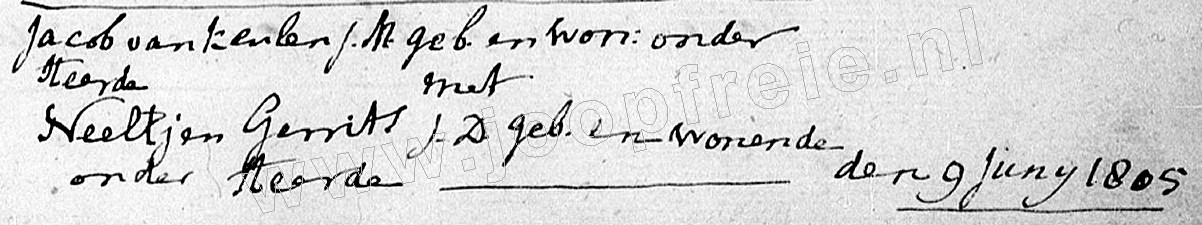 Jacob van Keulen J.M. geb. en won: onder
Heerde met
Neeltjen Gerrits J.D geb. en wonende
onder Heerde den 9 Juny 1805
www.joopfreie.nl